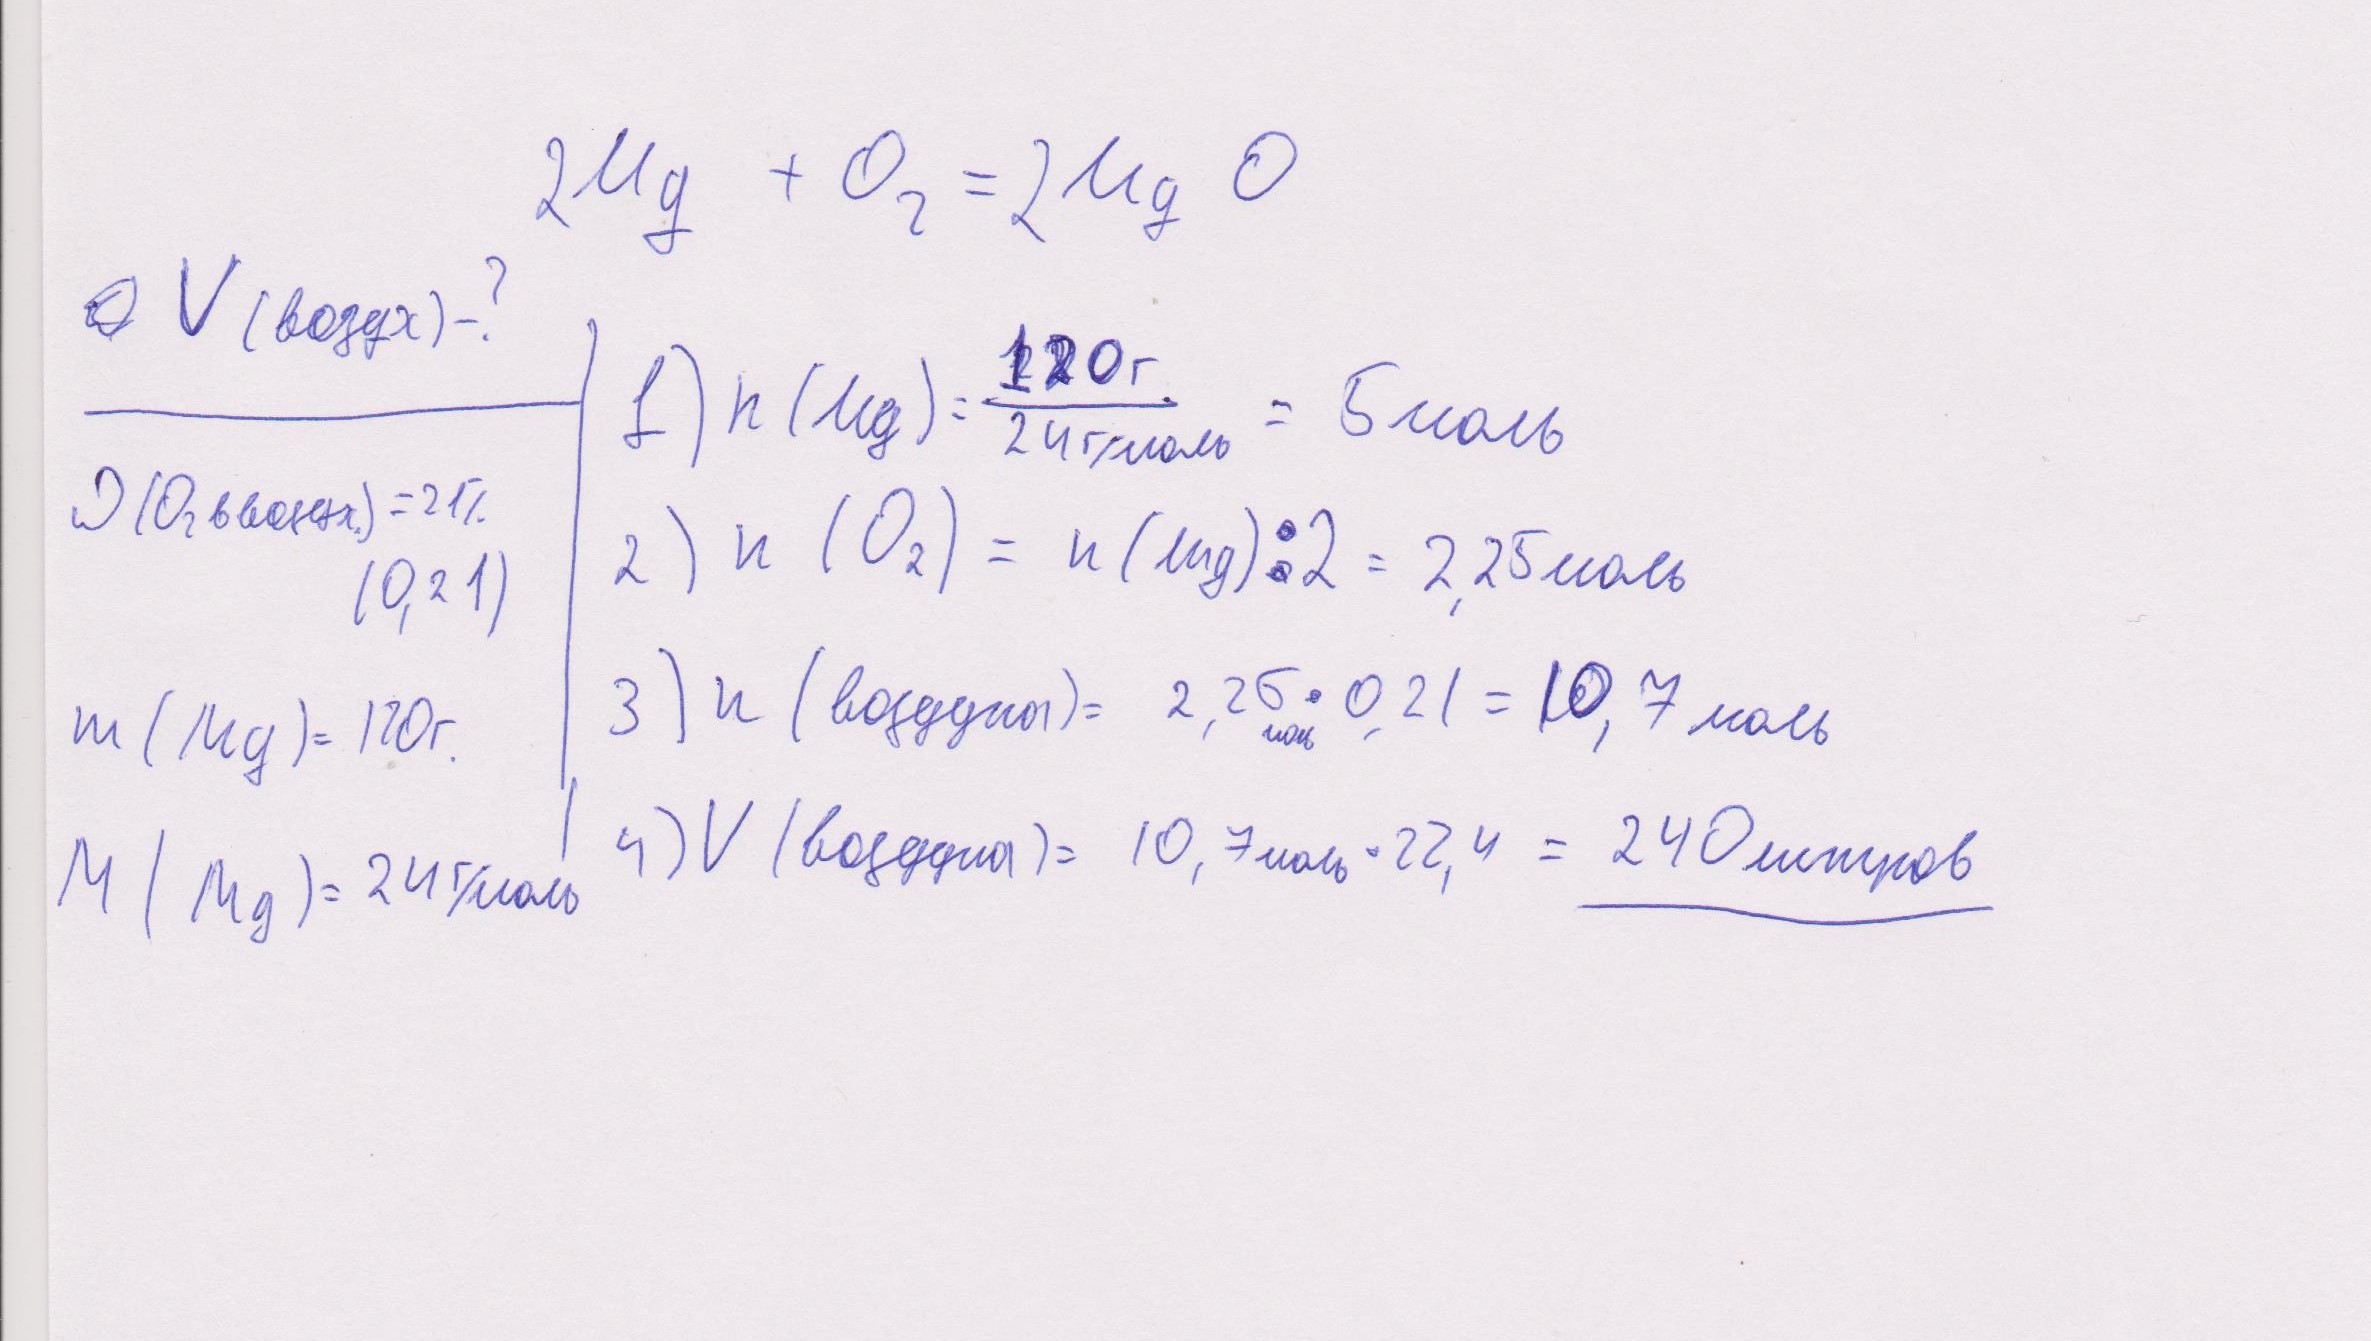 2Mg + O₂ = 2MgO
V (воздух) - ?
D (O₂ в воздух.) = 21%
(0,21)
m (Mg) = 120г.
M (Mg) = 24г/моль
1) n (Mg) = 120г / 24г/моль = 5 моль
2) n (O₂) = n (Mg) : 2 = 2,25 моль
3) n (воздуха) = 2,25 моль · 0,21 = 10,7 моль
4) V (воздуха) = 10,7 моль · 22,4 = 240 литров